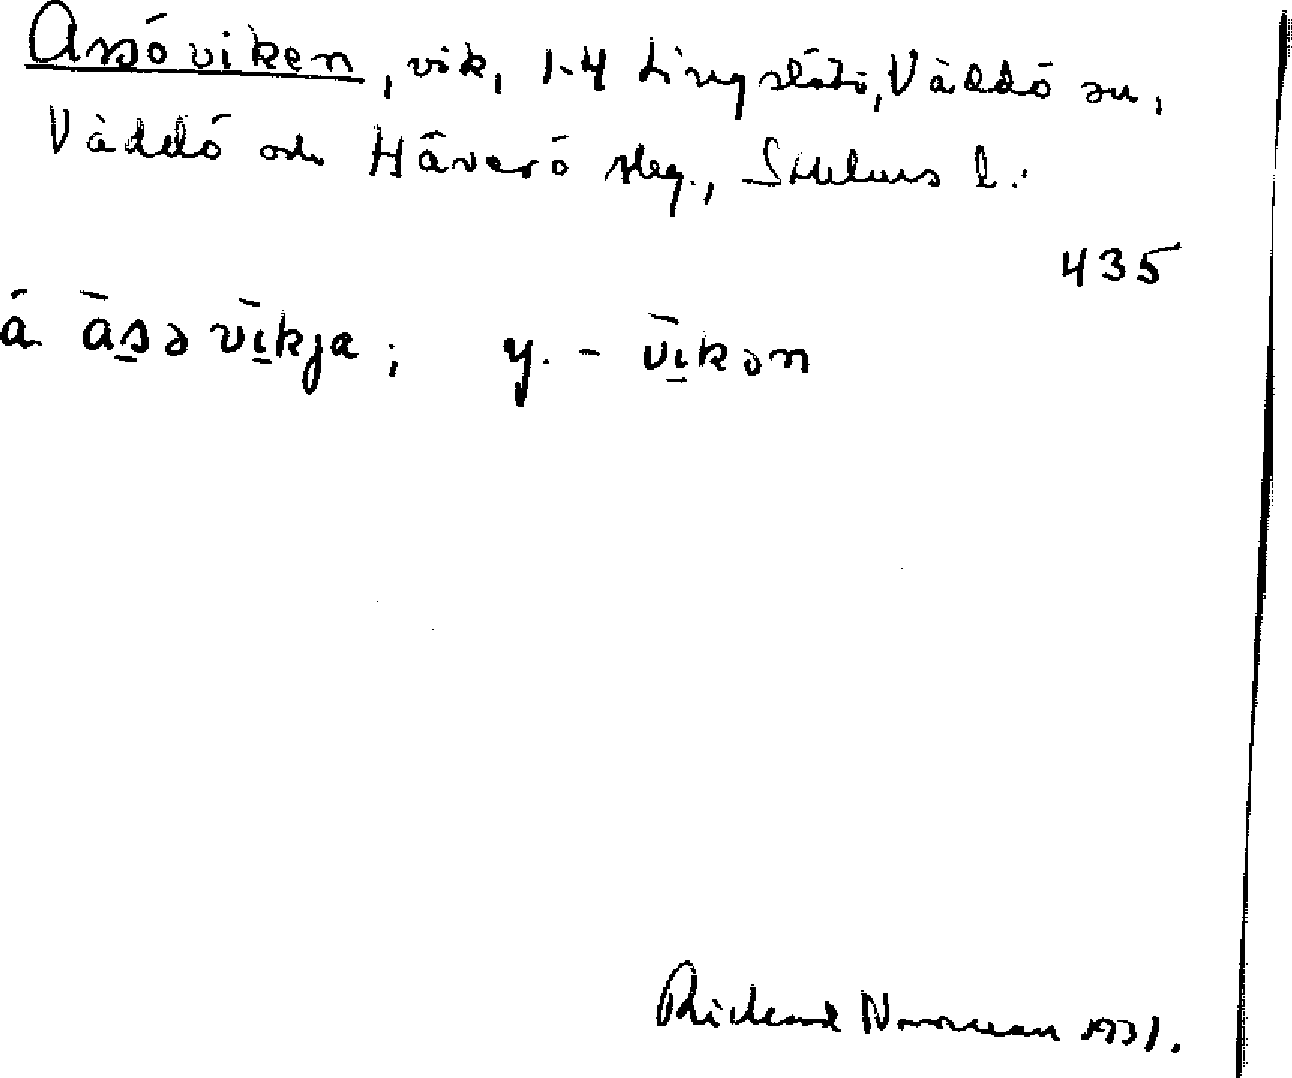 Assöviken, vik, 1-4 Lingslätö, Väddö sn,
Väddö och Häverö skg., Sthlms l.
435
á ās̲ə vī̲kja; y. - vī̲kən
Richard Norrman 1931.